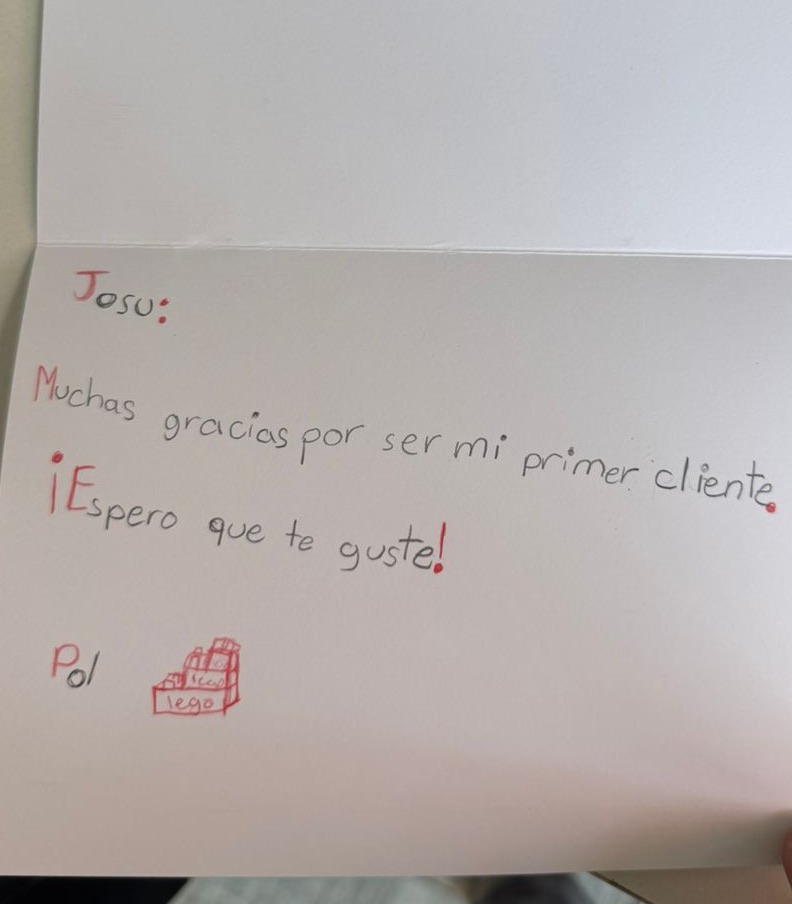 Josu:
Muchas gracias por ser mi primer cliente.
¡Espero que te guste!
Pol
lego